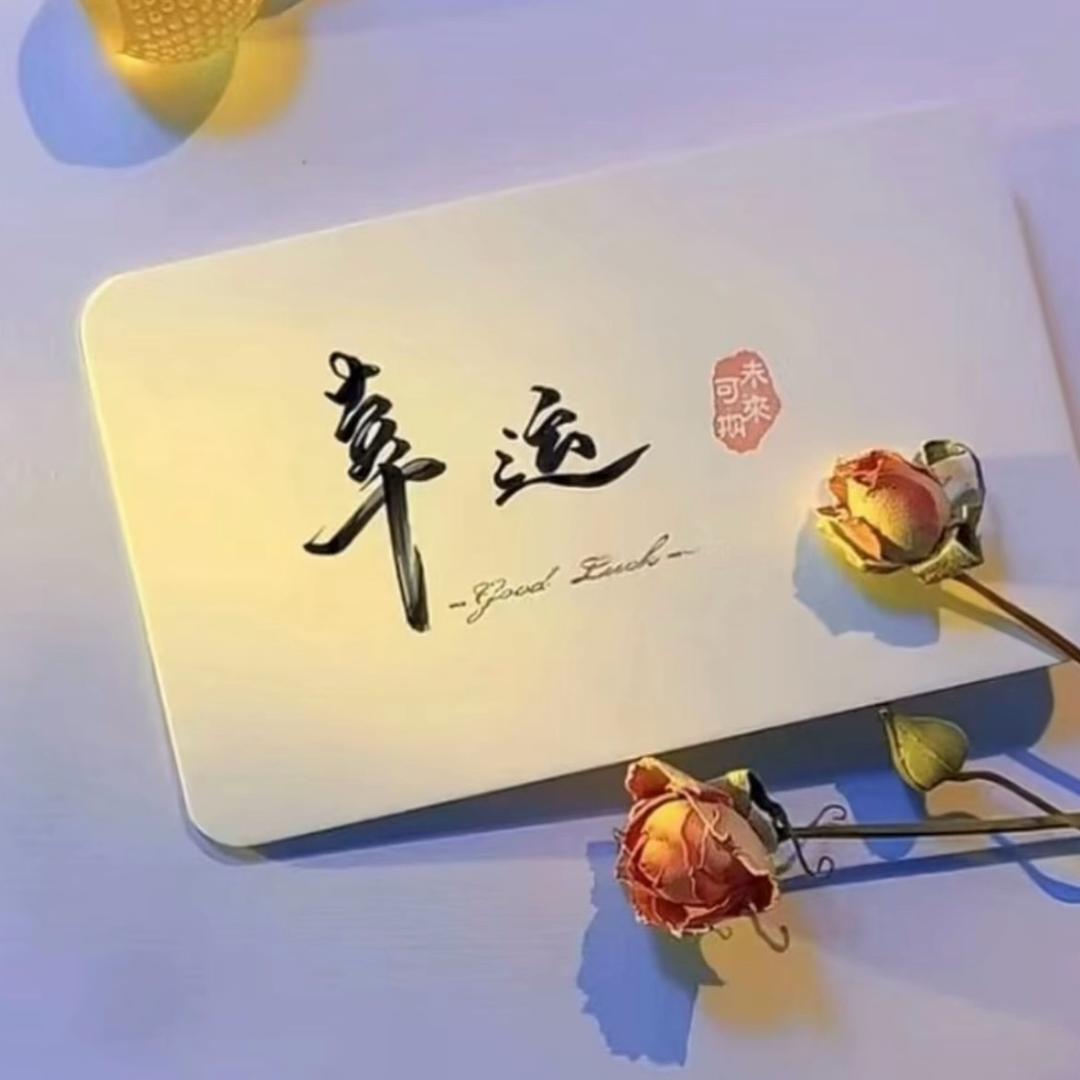 幸运
未來可期
-Good Luck-